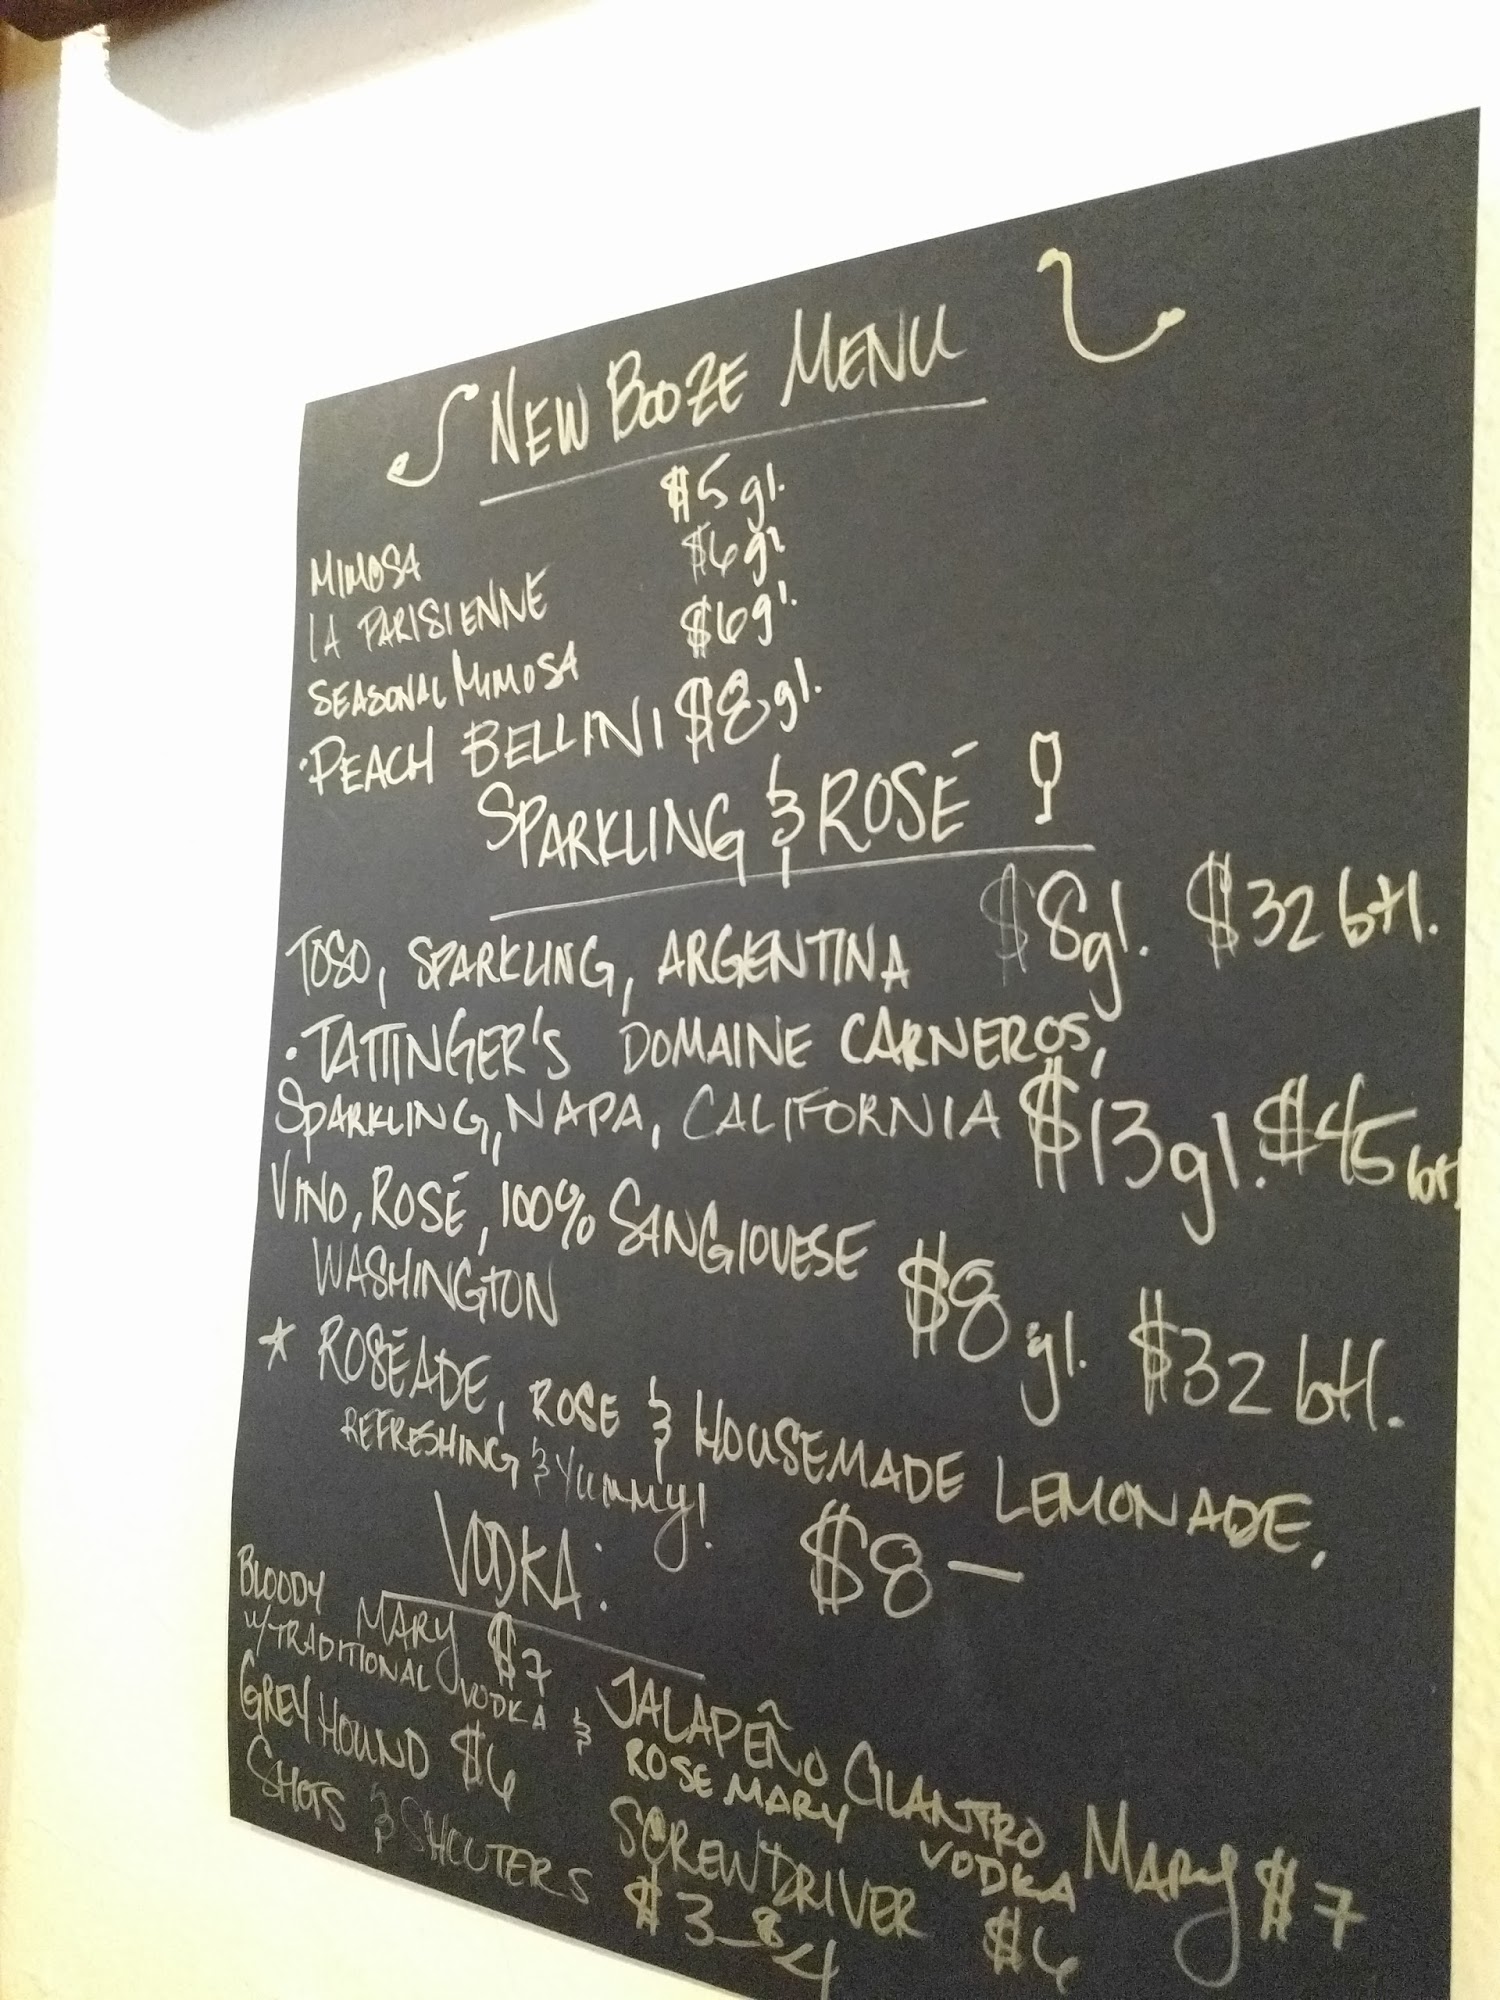 NEW BOOZE MENU
MIMOSA $5 gl.
LA PARISIENNE $6 gl
SEASONAL MIMOSA $6 gl.
·PEACH BELLINI $8 gl.
SPARKLING & ROSÉ
TOSO, SPARKLING, ARGENTINA $8 gl. $32 btl.
·TATTINGER'S DOMAINE CARNEROS,
SPARKLING, NAPA, CALIFORNIA $13 gl. $45 btl
VINO, ROSÉ, 100% SANGIOVESE
WASHINGTON $8 gl. $32 btl.
★ ROSÉADE, ROSE & HOUSEMADE LEMONADE,
REFRESHING & YUMMY! $8—
VODKA:
BLOODY MARY $7 JALAPEÑO CILANTRO MARY $7
W/TRADITIONAL VODKA & ROSEMARY VODKA
GREYHOUND $6 SCREWDRIVER $6
SHOTS & SHOOTERS $3-$4